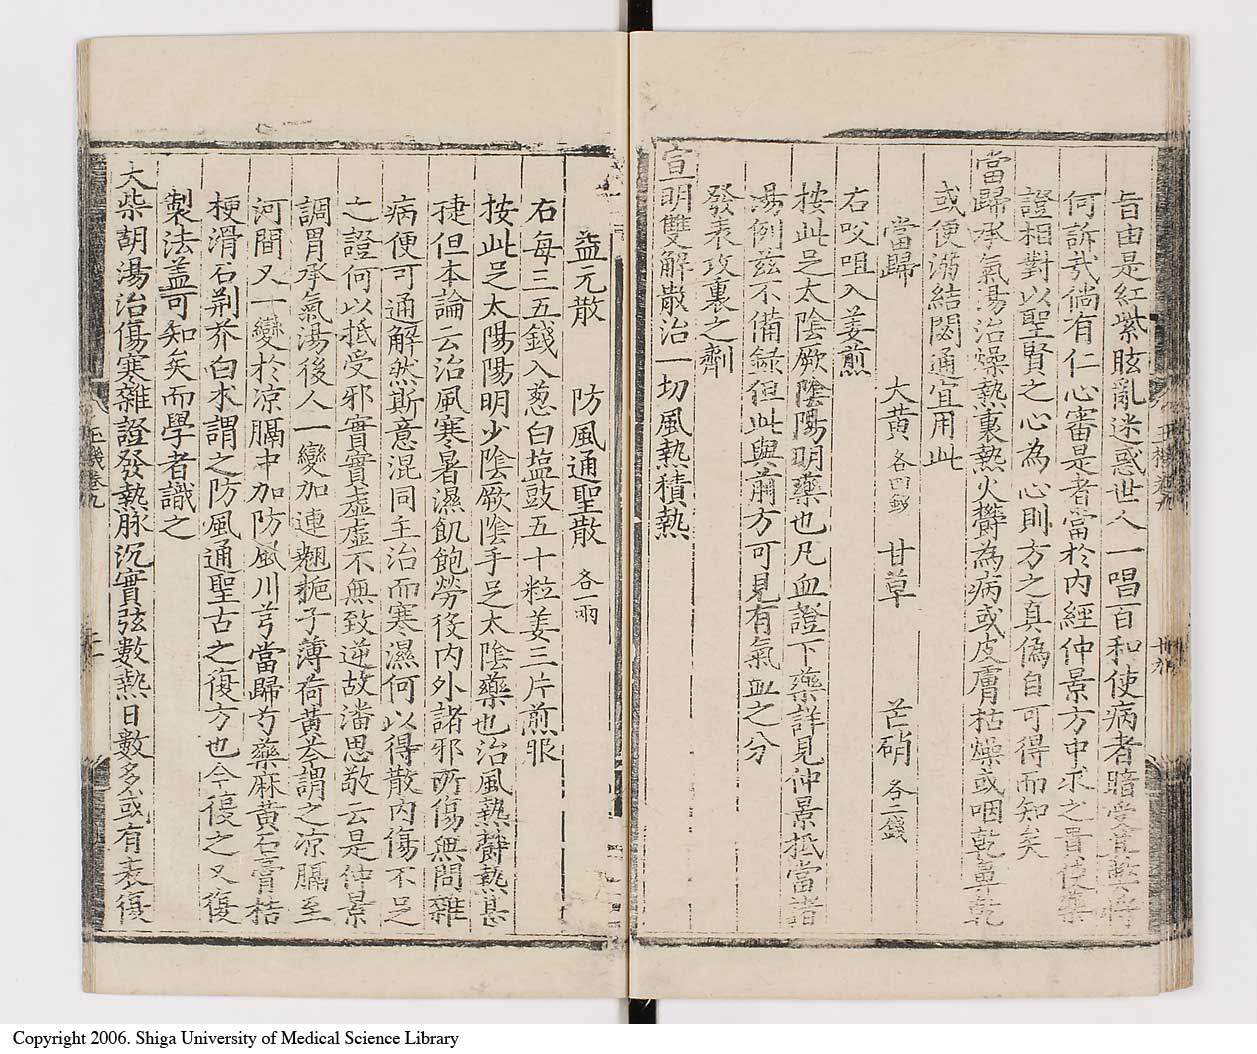 旨由是紅紫眩亂迷惑世人一唱百和使病者暗受
何訴哉倘有仁心審是者當於內經仲景方中求之
證相對以聖賢之心為心則方之真偽自可得而知矣
當歸承氣湯治燥熱裏熱火欝為病或皮膚枯燥或咽乾鼻乾
或便溺結閟通宜用此
當歸 大黃 各四錢 甘草 芒硝 各二錢
右㕮咀入姜煎
按此足太陰厥陰陽明藥也凡血證下藥詳見仲景抵當諸
湯例玆不備録但此與前方可見有氣血之分
發表攻裏之劑
宣明雙解散治一切風熱積熱
益元散 防風通聖散 各一兩
右每三五錢入葱白塩豉五十粒姜三片煎服
按此足太陽陽明少陰厥陰手足太陰藥也治風熱欝熱甚
捷但本論云治風寒暑濕飢飽勞役內外諸邪所傷無問雜
病便可通解然斯意混同主治而寒濕何以得散內傷不足
之證何以抵受邪實實虛虛不無致逆故潘思敬云是仲景
調胃承氣湯後人一變加連翹梔子薄荷黃芩謂之凉膈至
河間又一變於凉膈中加防風川芎當歸芍藥麻黃石膏桔
梗滑石荊芥白朮謂之防風通聖古之復方也今復之又復
製法盖可知矣而學者識之
大柴胡湯治傷寒雜證發熱脉沉實弦數熱日數多或有表復
Copyright 2006. Shiga University of Medical Science Library